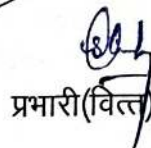 प्रभारी(वित्त)